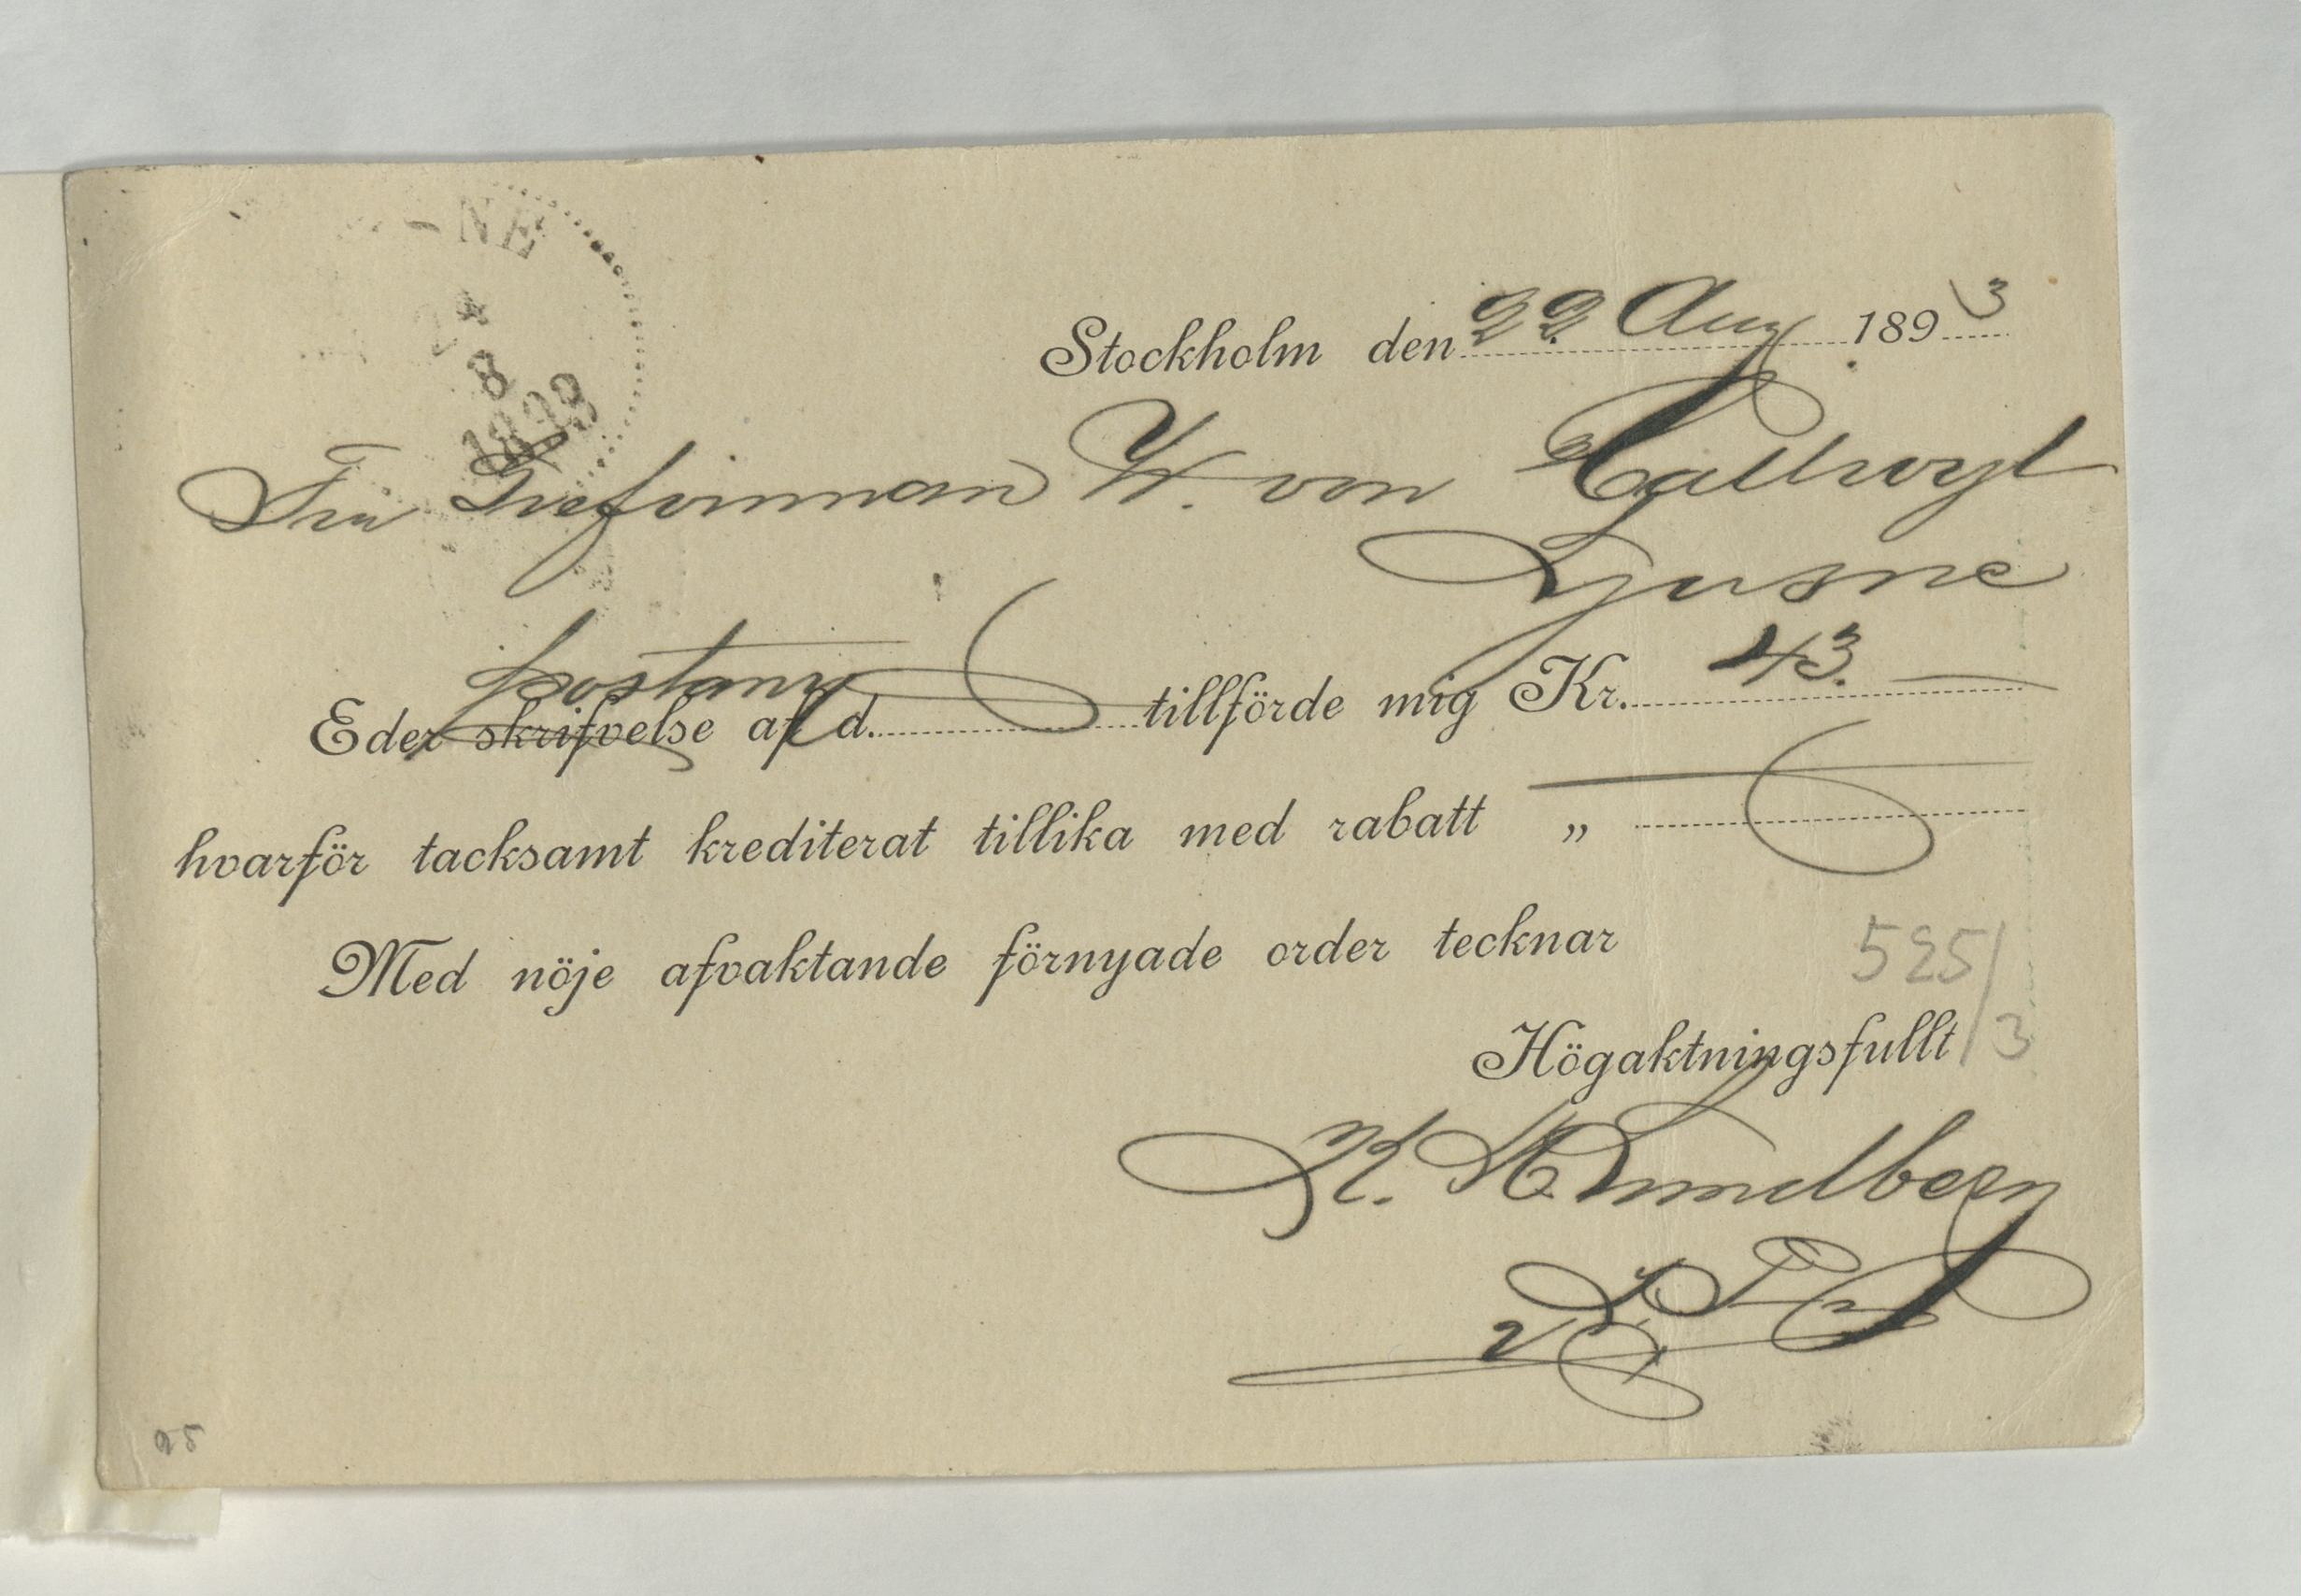 -NE
24
8
1893
Stockholm den 22. Aug 1893
Fru Grefvinnan W. von Hallwyl
Ljusne
postanv
Eder skrifvelse af d. tillförde mig Kr. 43. —
hvarför tacksamt krediterat tillika med rabatt „
Med nöje afvaktande förnyade order tecknar
525/3
Högaktningsfullt
K. M. Lundberg
95